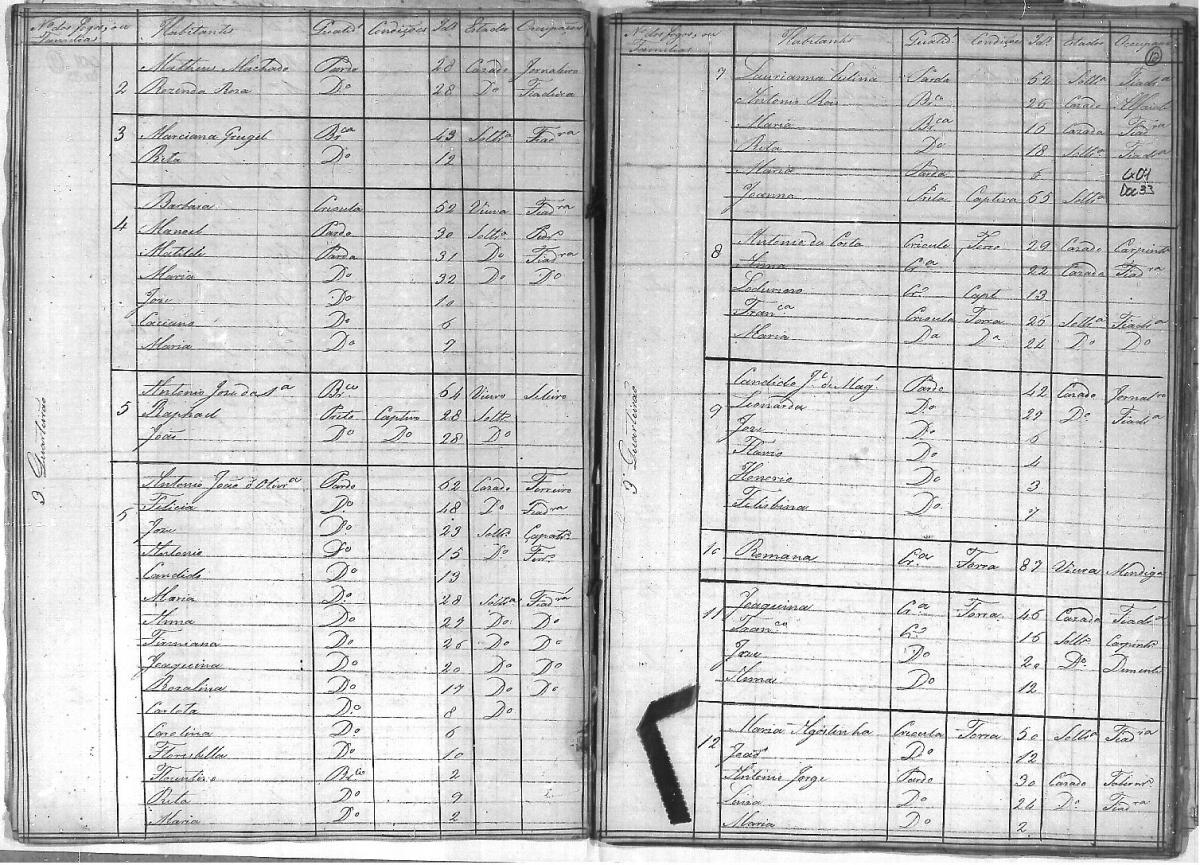 Nº dos fogos, ou Familias Habitantes Qualid^e Condições Id^e Estados Occupações
3 Quarteirão
2
Matheus Machado Pardo 28 Cazado Jornaleiro
Rozenda Roza D^o 28 D^o Fiadeira
3
Marciana Gurgel Br^ca 43 Solt^a Fiad^ra
Rita D^o 12
4
Barbara Crioula 52 Viuva Fiad^ra
Manoel Pardo 30 Solt^o
Matilde Parda 31 D^o Fiad^ra
Maria D^o 32 D^o D^o
Joze D^o 10
Caciano D^o 6
Maria D^o 7
5
Antonio Joze da S^a Br^co 64 Viuvo
Raphael Preto Captivo 28 Solt^o
João D^o D^o 28 D^o
6
Antonio João d'Oliv^a Pardo 62 Cazado Ferreiro
Felicia D^o 48 D^o Fiad^ra
Joze D^o 23 Solt^o Çapat^o
Antonio D^o 15 D^o Fer^o
Candido D^o 13
Maria D^o 28 Solt^a Fiad^ra
Anna D^o 27 D^o D^o
Firmiana D^o 26 D^o D^o
Joaquina D^o 20 D^o D^o
Rozalina D^o 17 D^o D^o
Carlota D^o 8 D^o
Carolina D^o 6
D^o 10
Br^co 2
Rita D^o 9
Maria D^o 2
Nº dos fogos, ou Familias Habitantes Qualid^e Condições Id^e Estados Occupaçoe
3 Quarteirão
7
Laurianna Parda 52 Solt^a Fiad^ra
Antonio Br^co 26 Cazado Alfaiate
Maria Br^ca 16 Cazada Fiad^ra
Rita D^o 18 Solt^a Fiad^ra
Maria Parda 6
G04
Doc 33
Joanna Preta Captiva 65 Solt^a
8
Antonio da Costa Crioulo Forro 29 Cazado Carpint^o
Anna Cr^a 22 Cazada Fiad^ra
Cr^o Capt 13
Fran^ca Crioula Forra 26 Solt^a Fiad^ra
Maria D^a D^a 24 D^o D^o
9
Candido J^e de Mag^s Pardo 42 Cazado Jornal^ro
Leonarda D^o 27 D^o Fiad^ra
Joze D^o 6
Flavio D^o 4
Honorio D^o 3
Filisbina D^o 7
10
Romana Cr^a Forra 87 Viuva Mendiga
11
Joaquina Cr^a Forra 46 Cazada Fiad^ra
Fran^co Cr^o 16 Solt^o Carpint^o
Joze D^o 20 D^o Demente
Anna D^o 12
12
Maria Agostinha Crioula Forra 50 Solt^a Fiad^ra
João D^o 12
Antonio Jorge Pardo 30 Cazado
Luiza D^o 26 D^o Fiad^ra
Maria D^o 2